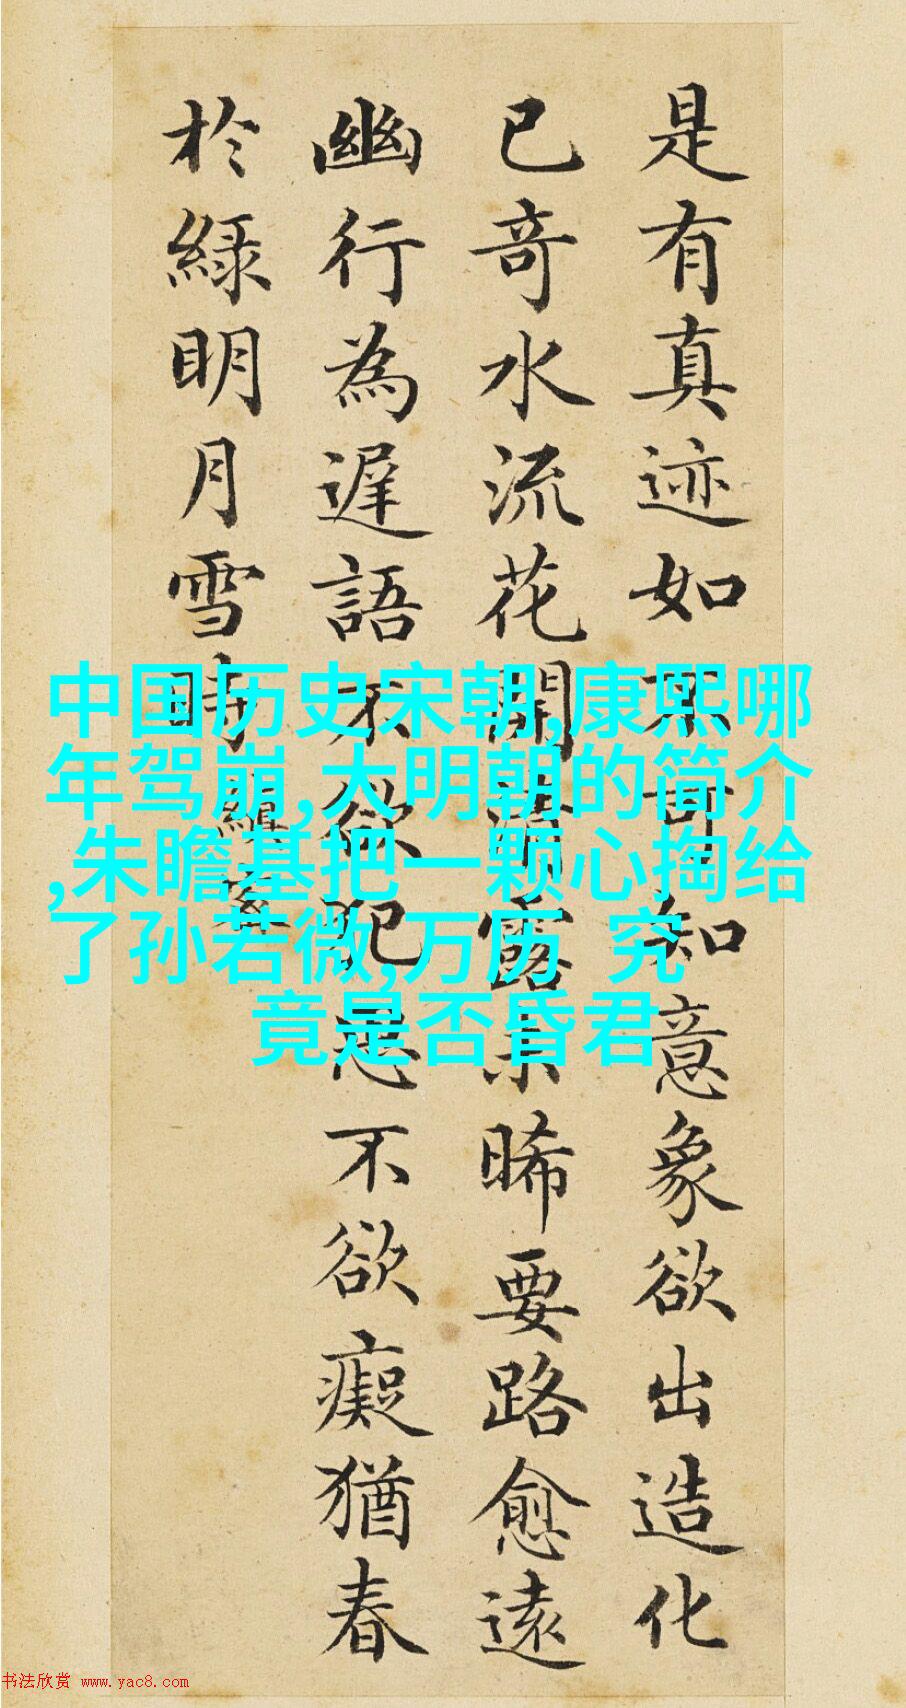 是有真迹如不可知意象欲出造化
已奇水流花開清露未晞要路愈遠
幽行為遲語不欲犯思不欲癡猶春
於綠明月雪時 縝密
中国历史宋朝,康熙哪
年驾崩,大明朝的简介
,朱瞻基把一颗心掏给
了孙若微,万历 究
竟是否昏君
书法欣赏 www.yac8.com